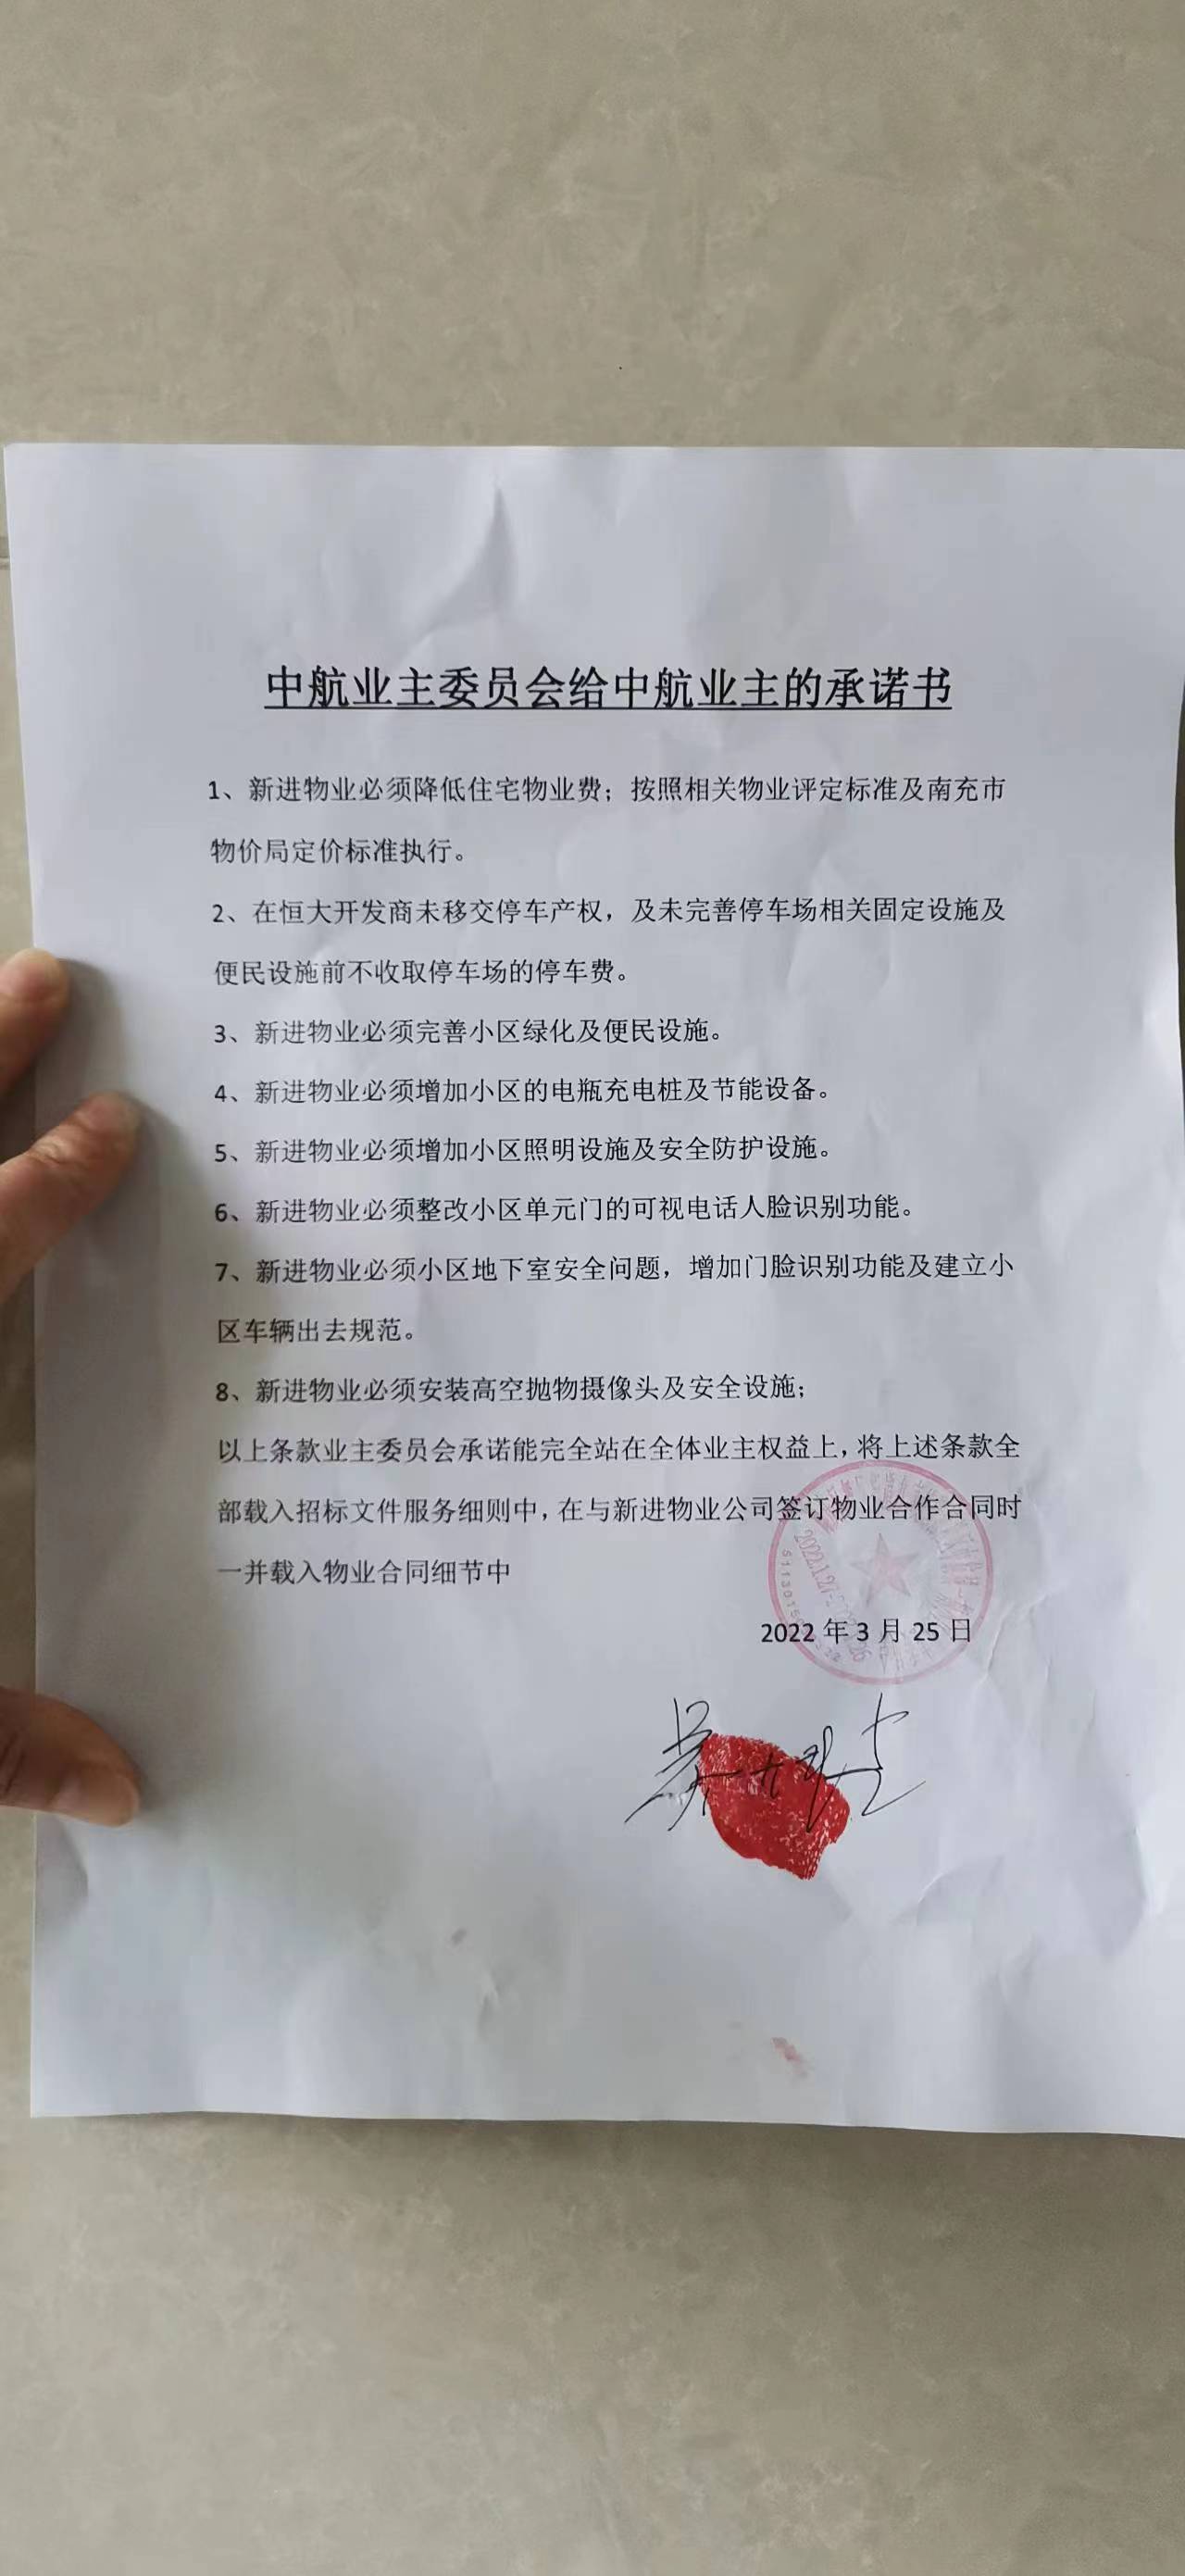 中航业主委员会给中航业主的承诺书
1、新进物业必须降低住宅物业费；按照相关物业评定标准及南充市
物价局定价标准执行。
2、在恒大开发商未移交停车产权，及未完善停车场相关固定设施及
便民设施前不收取停车场的停车费。
3、新进物业必须完善小区绿化及便民设施。
4、新进物业必须增加小区的电瓶充电桩及节能设备。
5、新进物业必须增加小区照明设施及安全防护设施。
6、新进物业必须整改小区单元门的可视电话人脸识别功能。
7、新进物业必须小区地下室安全问题，增加门脸识别功能及建立小
区车辆出去规范。
8、新进物业必须安装高空抛物摄像头及安全设施；
以上条款业主委员会承诺能完全站在全体业主权益上，将上述条款全
部载入招标文件服务细则中，在与新进物业公司签订物业合作合同时
一并载入物业合同细节中
2022 年 3 月 25 日